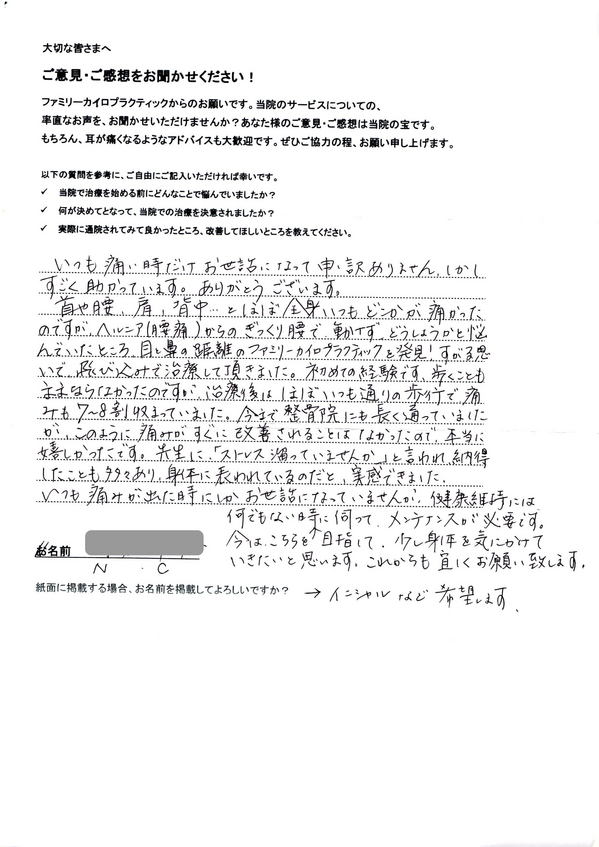 大切な皆さまへ
ご意見・ご感想をお聞かせください！
ファミリーカイロプラクティックからのお願いです。当院のサービスについての、
率直なお声を、お聞かせいただけませんか？あなた様のご意見・ご感想は当院の宝です。
もちろん、耳が痛くなるようなアドバイスも大歓迎です。ぜひご協力の程、お願い申し上げます。
以下の質問を参考に、ご自由にご記入いただければ幸いです。
✓ 当院で治療を始める前にどんなことで悩んでいましたか？
✓ 何が決めてとなって、当院での治療を決意されましたか？
✓ 実際に通院されてみて良かったところ、改善してほしいところを教えてください。
いつも痛い時だけお世話になって申し訳ありません。しかし
すごく助かっています。ありがとうございます。
首や腰、肩、背中…とほぼ全身いつもどこかが痛かった
のですが、ヘルニア(腰痛)からのぎっくり腰で、動けず、どうしようかと悩
んでいたところ、目と鼻の距離のファミリーカイロプラクティックを発見！すがる思
いで、飛び込みで治療して頂きました。初めての経験です。歩くことも
ままならなかったのですが、治療後はほぼいつも通りの歩行で、痛
みも7～8割収まっていました。今まで整骨院にも長く通っていました
が、このように痛みがすぐに改善されることはなかったので、本当に
嬉しかったです。先生に、「ストレス溜っていませんか」と言われ、納得
したことも多々あり、身体に表われているのだと、実感できました。
いつも痛みが出た時にしかお世話になっていませんが、健康維持には
何でもない時に伺って、メンテナンスが必要です。
今は、こちらを目指して、少し身体を気にかけて
いきたいと思います。これからも宜しくお願い致します。
お名前
N . C
紙面に掲載する場合、お名前を掲載してよろしいですか？ → イニシャルなど希望します。